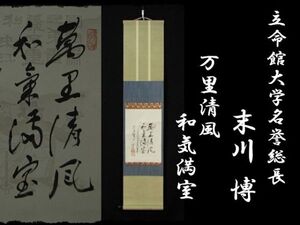 立命館大学名誉総長
末川 博
万里清風
和気満室
萬里清風
和氣満室